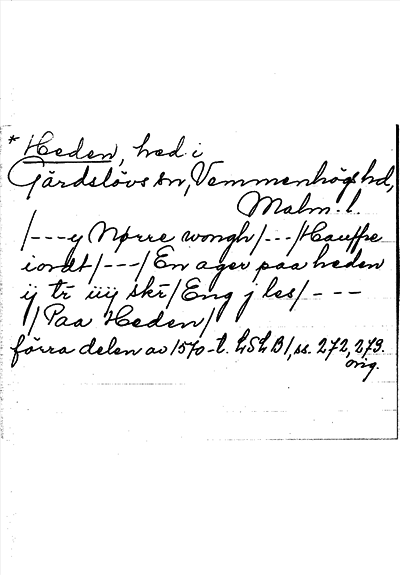 * Heden, hed i
Gärdslövs sn, Vemmenhögs hd,
Malm. l.
/---y Nørre wongh/---/Hauffre
iordt/---/En ager paa heden
ij tr iiij skr/Eng j les/---
/Paa Heden/
förra delen av 1570-t. LSLB 1, ss. 272, 273.
orig.